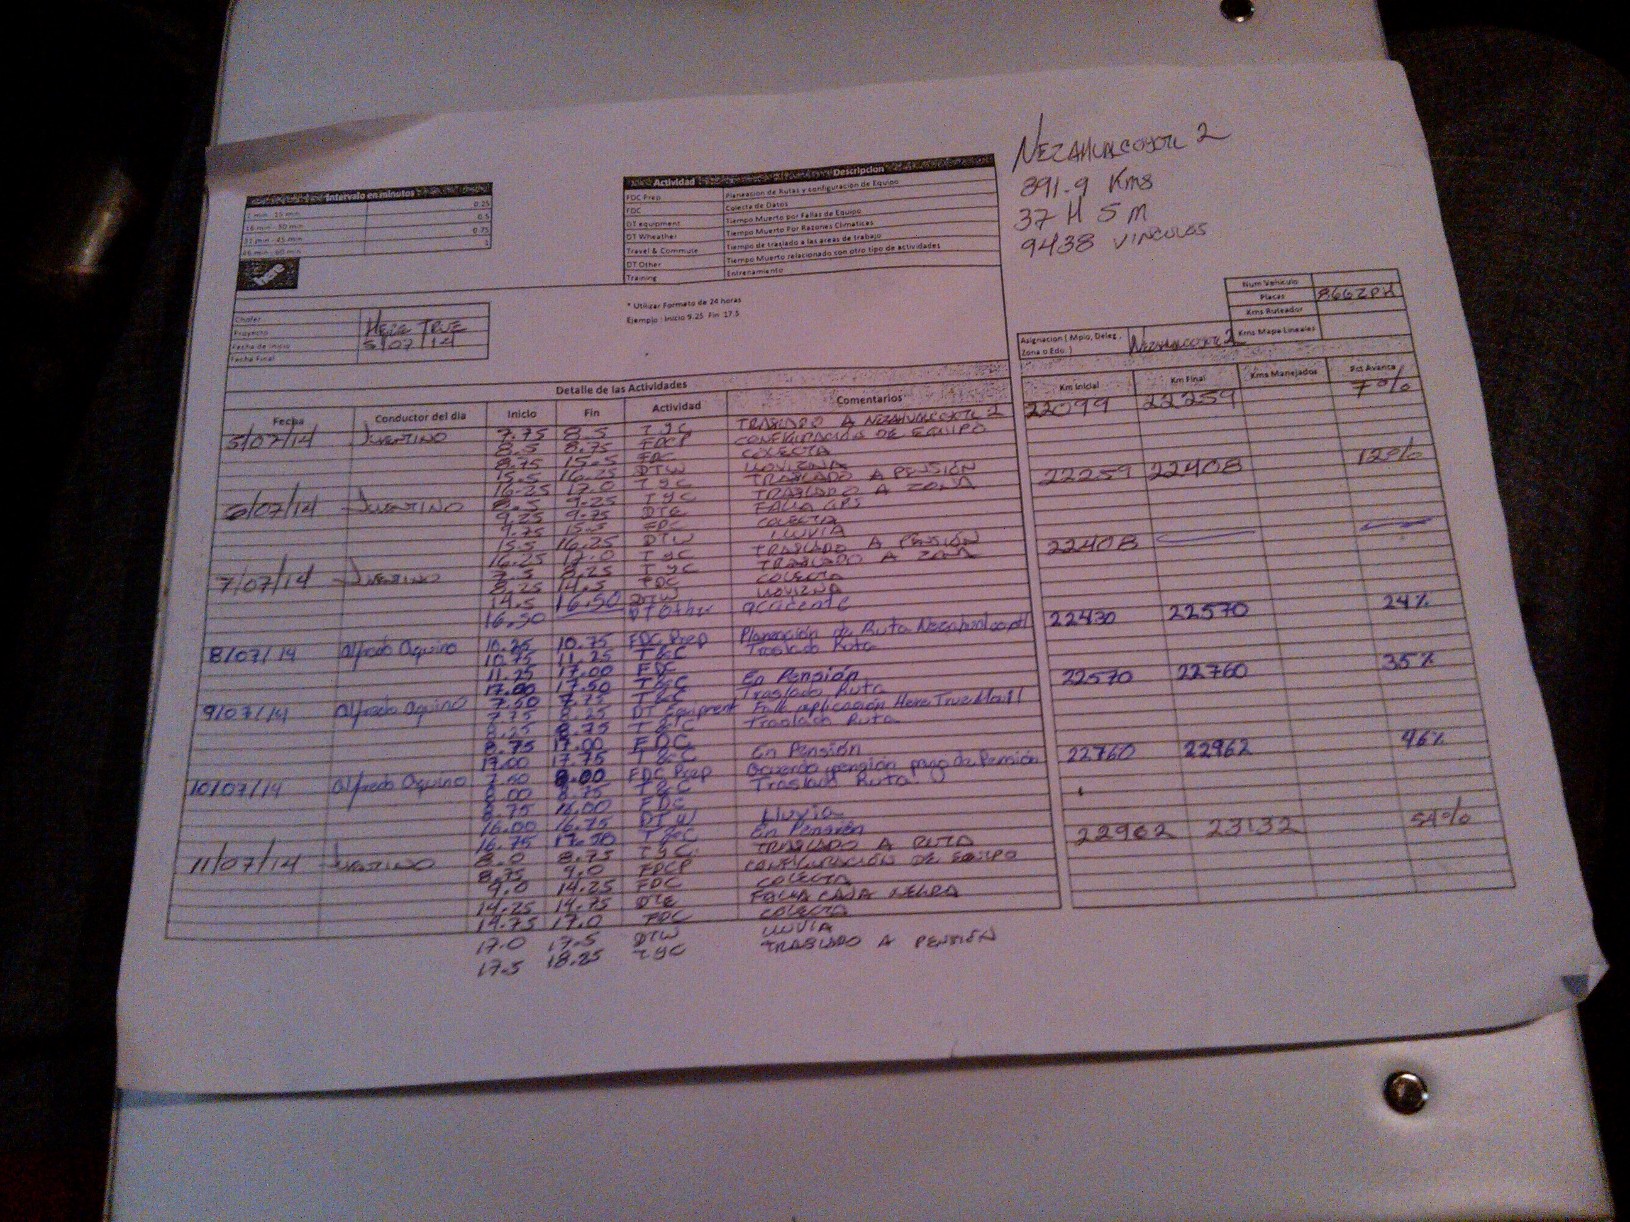 NEZAHUALCOYOTL 2
891.9 Kms
37 H 5 M
9438 VINCULOS
Intervalo en minutos
1 min - 15 min 0.25
16 min - 30 min 0.5
31 min - 45 min 0.75
46 min - 60 min 1
Actividad Descripcion
FDC Prep Planeacion de Rutas y configuracion de Equipo
FDC Colecta de Datos
DT equipment Tiempo Muerto por Fallas de Equipo
DT Wheather Tiempo Muerto Por Razones Climaticas
Travel & Commute Tiempo de traslado a las areas de trabajo
DT Other Tiempo Muerto relacionado con otro tipo de actividades
Training Entrenamiento
* Utilizar Formato de 24 horas
Ejemplo : Inicio 9.25 Fin 17.5
Chofer
Proyecto HERE TRUE
Fecha de inicio 5/07/14
Fecha Final
Num Vehiculo
Placas
Kms Ruteador
Kms Mapa Lineales
Asignacion ( Mpio, Deleg, Zona o Edo. ) NEZAHUALCOYOTL 2
Detalle de las Actividades
Fecha Conductor del dia Inicio Fin Actividad Comentarios Km Inicial Km Final Kms Manejados Pct Avance
5/07/14 JUVENTINO 7.75 8.5 T y C TRASLADO A NEZAHUALCOYOTL 2 22099 22259 7%
8.5 8.75 FDCP CONFIGURACIÓN DE EQUIPO
8.75 15.5 FDC COLECTA
15.5 16.25 DTW LLOVIZNA
16.25 17.0 T y C TRASLADO A PENSIÓN
6/07/14 JUVENTINO 8.5 9.25 T y C TRASLADO A ZONA 22259 22408 12%
9.25 9.75 DTE FALLA GPS
9.75 15.5 FDC COLECTA
15.5 16.25 DTW LLUVIA
16.25 17.0 T y C TRASLADO A PENSIÓN
7/07/14 JUVENTINO 7.5 8.25 T y C TRASLADO A ZONA 22408
8.25 14.5 FDC COLECTA
14.5 16.50 DTW LLOVIZNA
16.50 DT Other accidente
8/07/14 Alfredo Aquino 10.25 10.75 FDC Prep Planeación de Ruta Nezahualcoyotl 22430 22570 24%
10.75 11.25 T&C Traslado Ruta
11.25 17.00 FDC
17.00 17.50 T&C En Pensión
9/07/14 Alfredo Aquino 7.50 7.75 T&C Traslado Ruta 22570 22760 35%
7.75 8.25 DT Equipment Falla aplicación Here True
8.25 8.75 T&C Traslado Ruta
8.75 17.00 FDC
17.00 17.75 T&C En Pensión
10/07/14 Alfredo Aquino 7.50 8.00 FDC Prep Acuerdo pensión pago de Pensión 22760 22962 46%
8.00 8.75 T&C Traslado Ruta
8.75 16.00 FDC
16.00 16.75 DTW Lluvia
16.75 17.50 T&C En Pensión
11/07/14 JUVENTINO 8.0 8.75 T y C TRASLADO A RUTA 22962 23132 54%
8.75 9.0 FDCP CONFIGURACIÓN DE EQUIPO
9.0 14.25 FDC COLECTA
14.25 14.75 DTE FALLA CAJA NEGRA
14.75 17.0 FDC COLECTA
17.0 17.5 DTW LLUVIA
17.5 18.25 T y C TRASLADO A PENSIÓN